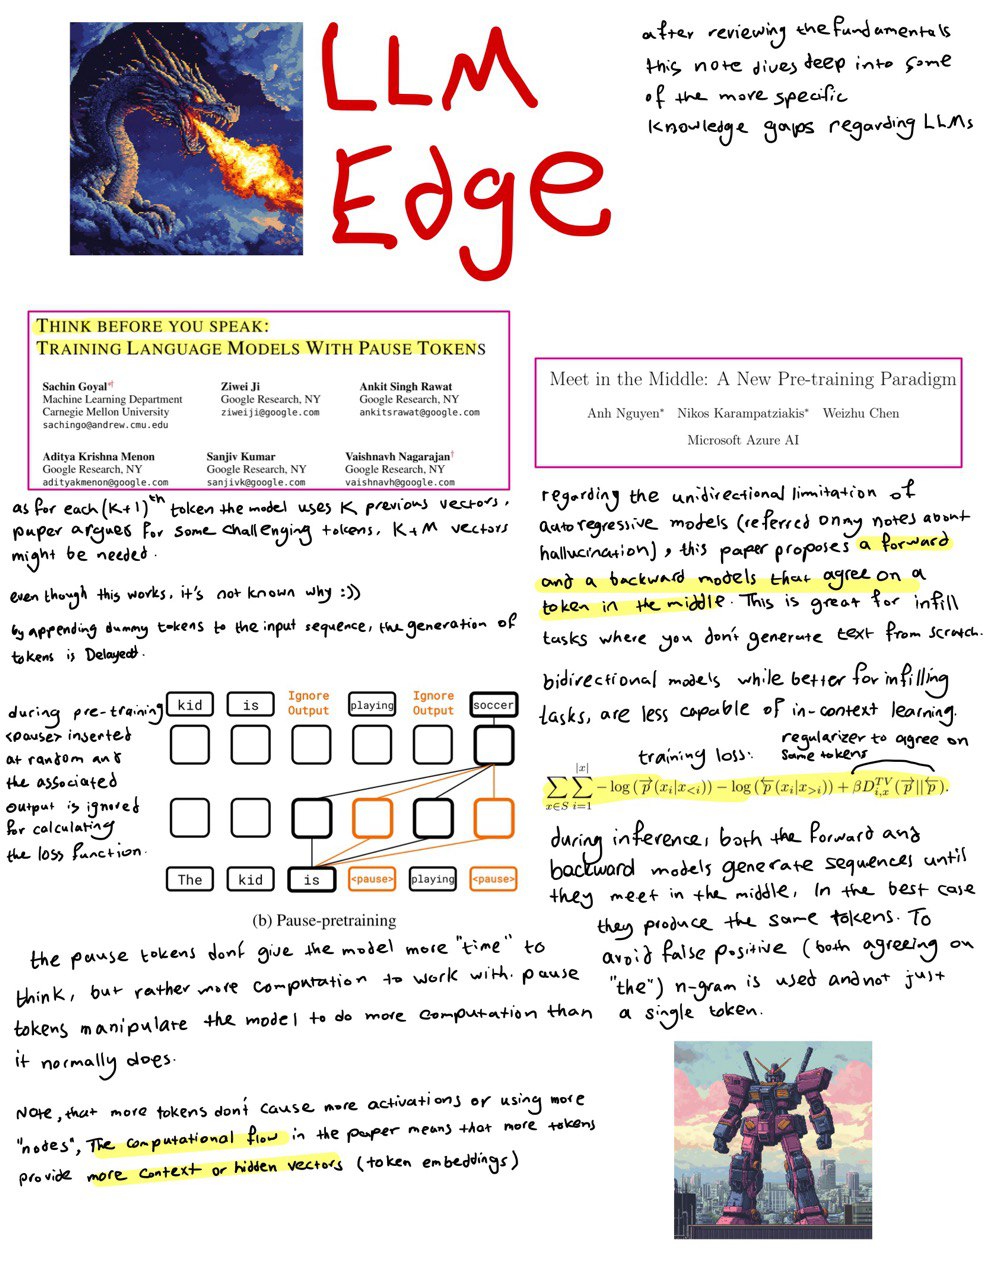 LLM
Edge
after reviewing the fundamentals
this note dives deep into some
of the more specific
knowledge gaps regarding LLMs
THINK BEFORE YOU SPEAK:
TRAINING LANGUAGE MODELS WITH PAUSE TOKENS
Sachin Goyal*†
Machine Learning Department
Carnegie Mellon University
sachingo@andrew.cmu.edu
Ziwei Ji
Google Research, NY
ziweiji@google.com
Ankit Singh Rawat
Google Research, NY
ankitsrawat@google.com
Aditya Krishna Menon
Google Research, NY
adityakmenon@google.com
Sanjiv Kumar
Google Research, NY
sanjivk@google.com
Vaishnavh Nagarajan†
Google Research, NY
vaishnavh@google.com
as for each (K+1)th token the model uses K previous vectors,
paper argues for some challenging tokens, K+M vectors
might be needed.
even though this works, it's not known why :))
by appending dummy tokens to the input sequence, the generation of
tokens is Delayed.
during pre-training
<pause> inserted
at random and
the associated
output is ignored
for calculating
the loss function.
kid is Ignore Output playing Ignore Output soccer
The kid is <pause> playing <pause>
(b) Pause-pretraining
the pause tokens don't give the model more "time" to
think, but rather more computation to work with. pause
tokens manipulate the model to do more computation than
it normally does.
Note, that more tokens don't cause more activations or using more
"nodes", The computational flow in the paper means that more tokens
provide more context or hidden vectors (token embeddings)
Meet in the Middle: A New Pre-training Paradigm
Anh Nguyen* Nikos Karampatziakis* Weizhu Chen
Microsoft Azure AI
regarding the unidirectional limitation of
autoregressive models (referred on my notes about
hallucination), this paper proposes a forward
and a backward models that agree on a
token in the middle. This is great for infill
tasks where you don't generate text from scratch.
bidirectional models while better for infilling
tasks, are less capable of in-context learning.
training loss:
regularizer to agree on
same tokens
∑x∈S ∑i=1|x| − log (p→(xi|x<i)) − log (p←(xi|x>i)) + βDi,xTV(p→||p←).
during inference, both the forward and
backward models generate sequences until
they meet in the middle, In the best case
they produce the same tokens. To
avoid false positive (both agreeing on
"the") n-gram is used and not just
a single token.